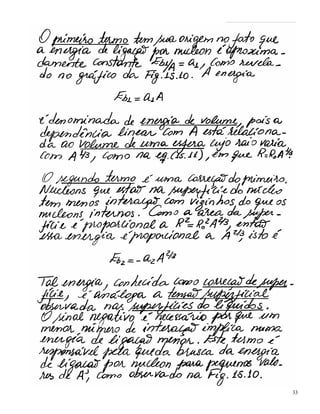 O primeiro termo tem sua origem no fato que
a energia de ligação por nucleon é aproxima-
damente constante Eb/A = a1, como revela-
do no gráfico da Fig. 15.10. A energia
Eb1 = a1A
é denominada de energia de volume, pois a
dependência linear com A está relaciona-
da ao volume de uma esfera cujo raio varia
com A^1/3, como na eq. (15.11), em que R=R0A^1/3
O segundo termo é uma correção do primeiro.
Nucleons que estão na superfície do núcleo
tem menos interação com vizinhos do que os
nucleons internos. Como a área da super-
fície é proporcional a R²=R0²A^2/3, então
essa energia é proporcional a A^2/3 isto é
Eb2 = -a2A^2/3
Tal energia, conhecida como correção de super-
fície, é análoga a tensão superficial
observada nas superfícies de líquidos.
O sinal negativo é necessário porque um
menor número de interação implica numa
energia de ligação menor. Este termo é
responsável pela queda brusca da energia
de ligação por nucleon para pequenos valo-
res de A, como observado na Fig. 15.10.
33